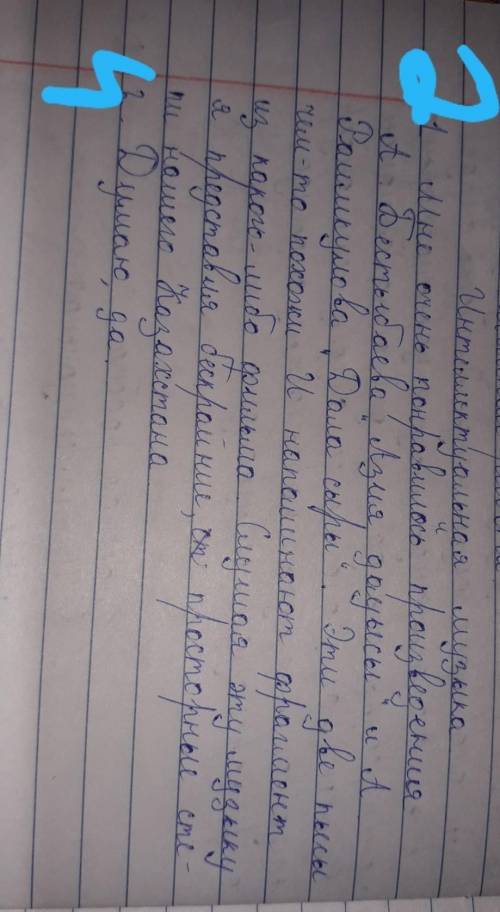 Интеллектуальная музыка
2
1. Мне очень понравилось произведения
А. Бестыбаева "Азия дауысы" и А
Раимкулова "Дала сыры". Эти две
чем-то похожи И напоминают фрагмент
из какого-либо фильма Слушая эту музыку
я представил бескрайние, просторные сте-
пи нашего Казахстана
4
2. Думаю, да.